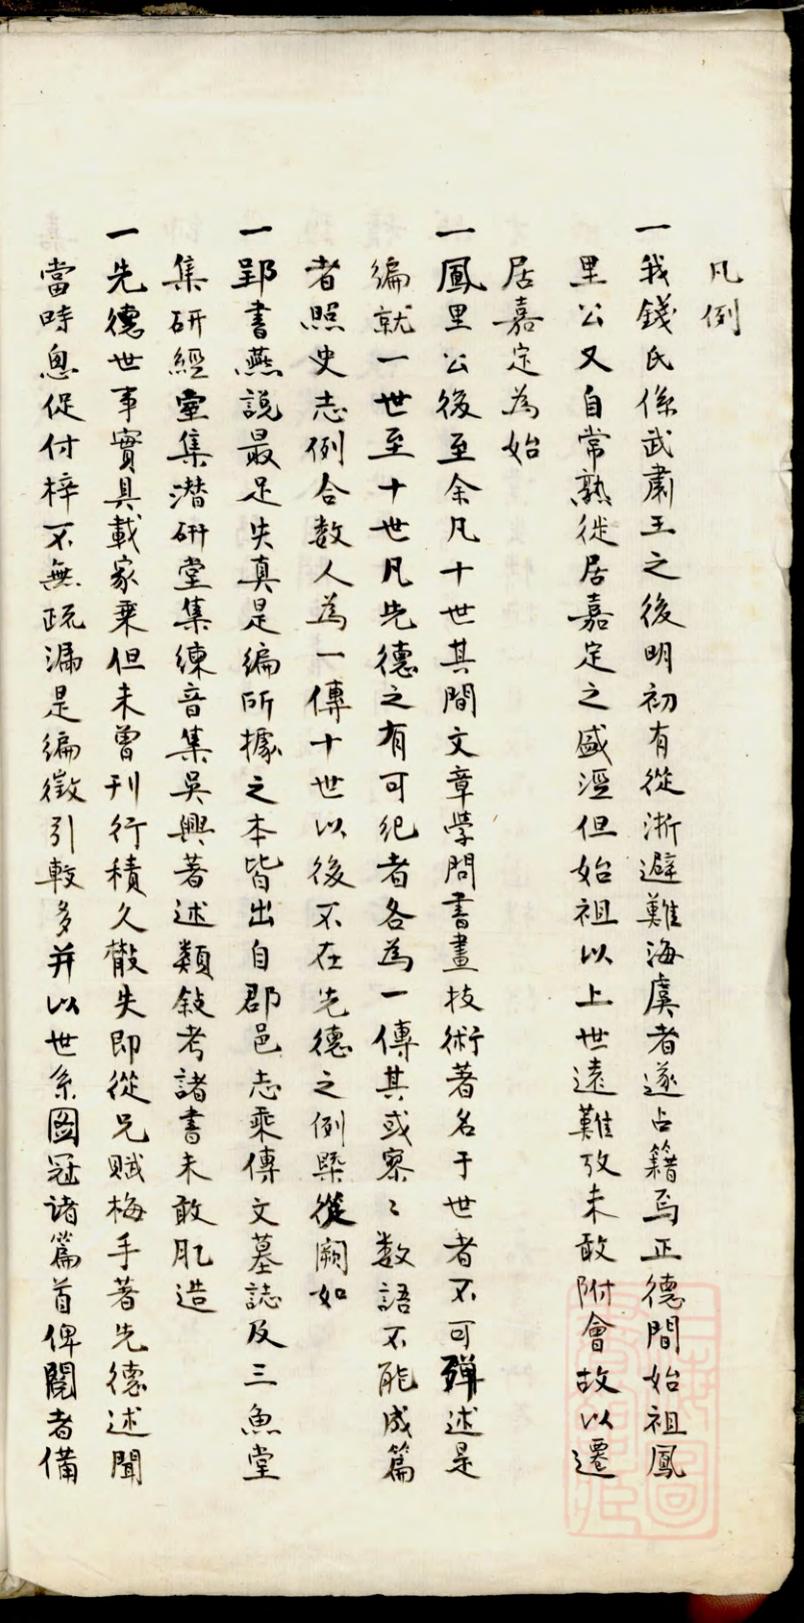 凡例
一我錢氏係武肅王之後明初有從浙避難海虞者遂占籍焉正德間始祖鳳
里公又自常熟徙居嘉定之盛涇但始祖以上世遠難攷未敢附會故以遷
居嘉定為始
一鳳里公後至余凡十世其間文章學問書畫技術著名于世者不可殫述是
編就一世至十世凡先德之有可紀者各為一傳其或寥〻數語不能成篇
者照史志例合數人為一傳十世以後不在先德之例槩從闕如
一郢書燕說最足失真是編所據之本皆出自郡邑志乘傳文墓誌及三魚堂
集研經室集潛研堂集練音集吳興著述類敍考諸書未敢肊造
一先德世事實具載家乗但未曾刊行積久散失即從兄賦梅手著先德述聞
當時悤促付梓不無疏漏是編徵引較多并以世系圖冠諸篇首俾閱者備